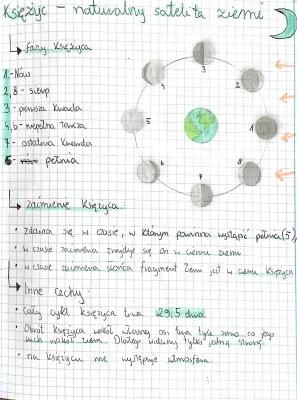 Księżyc – naturalny satelita ziemi
fazy Księżyca
1.-Nów
2,8 - sierp
3 - pierwsza kwadra
4,6 - niepełna tarcza
7 - ostatnia kwadra
5 - pełnia
3
4
2
5
1
6
8
7
zaćmienie Księżyca:
• zdarza się w czasie, w którym powinna wystąpić pełnia (5),
• w czasie zaćmienia znajduje się on w cieniu ziemi
• w czasie zaćmienia słońca fragment Ziemi jest w cieniu Księżyca
Inne cechy:
• Cały cykl księżyca trwa 29,5 dnia
• Obrót księżyca wokół własnej osi trwa tyle samo co jego
ruch wokół ziemi. Dlatego widzimy tylko jedną stronę.
• na księżycu nie występuje atmosfera